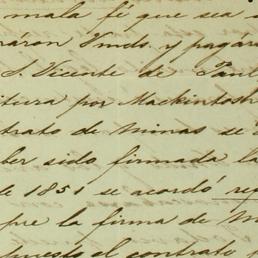 mala fé que sea
áron Vmds. y pagár
S. Vicente de Paul
por Mackintosh
trato de minas se
ber sido firmada la
e 1851 se acordó
pre la firma de
puesto el contrato